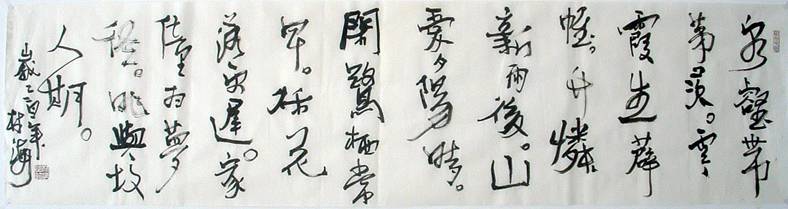 泉壑帶
茅茨。雲
霞生薜
帷。竹憐
新雨後。山
愛夕陽時。
閑鷺栖常
早。秋花
落更遲。家
僮掃蘿
徑。昨與故
人期。
歲乙酉年